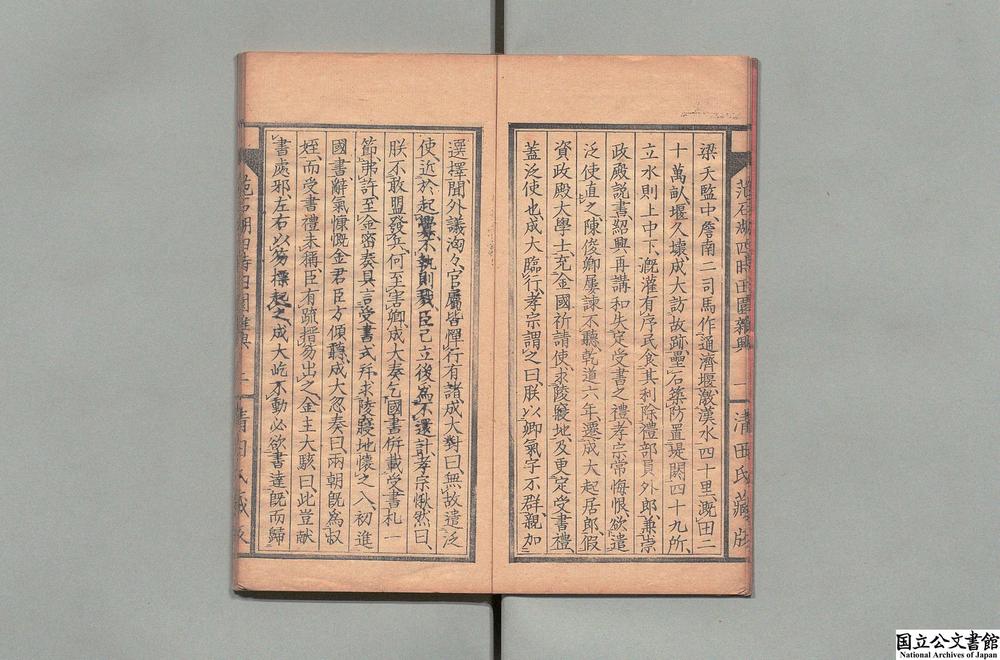 梁天監中、詹南二司馬作通濟堰、激漢水四十里、漑田二
十萬畝、堰久壞、成大訪故跡、壘石築防、置堤閘四十九所、
立水則、上中下、漑灌有序、民食其利、除禮部員外郎、兼崇
政殿說書、紹興再講和、失定受書之禮、孝宗常悔恨、欲遣
泛使直之、陳俊卿屢諫不聽、乾道六年、遷成大起居郎、假
資政殿大學士、充金國祈請使、求陵寢地、及更定受書禮、
蓋泛使也、成大臨行、孝宗謂之曰、朕以卿氣宇不群、親加
范石湖四時田園雜興
一
清田氏藏版
選擇、聞外議洶々、官屬皆憚行、有諸、成大對曰、無故遣泛
使、近於起釁、不執則戮、臣已立後、爲不還計、孝宗愀然曰、
朕不敢盟發兵、何至害卿、成大奏乞國書併載受書札一
節、弗許、至金密奏、具言受書式、拜求陵寢地、懷之入、初進
國書、辭氣慷慨、金君臣方傾聽、成大忽奏曰、兩朝旣爲叔
姪、而受書禮未稱、臣有疏、搢笏出之、金主大駭曰、此豈獻
書處邪、左右以笏標起之、成大屹不動、必欲書達、旣而歸
国立公文書館
National Archives of Japan